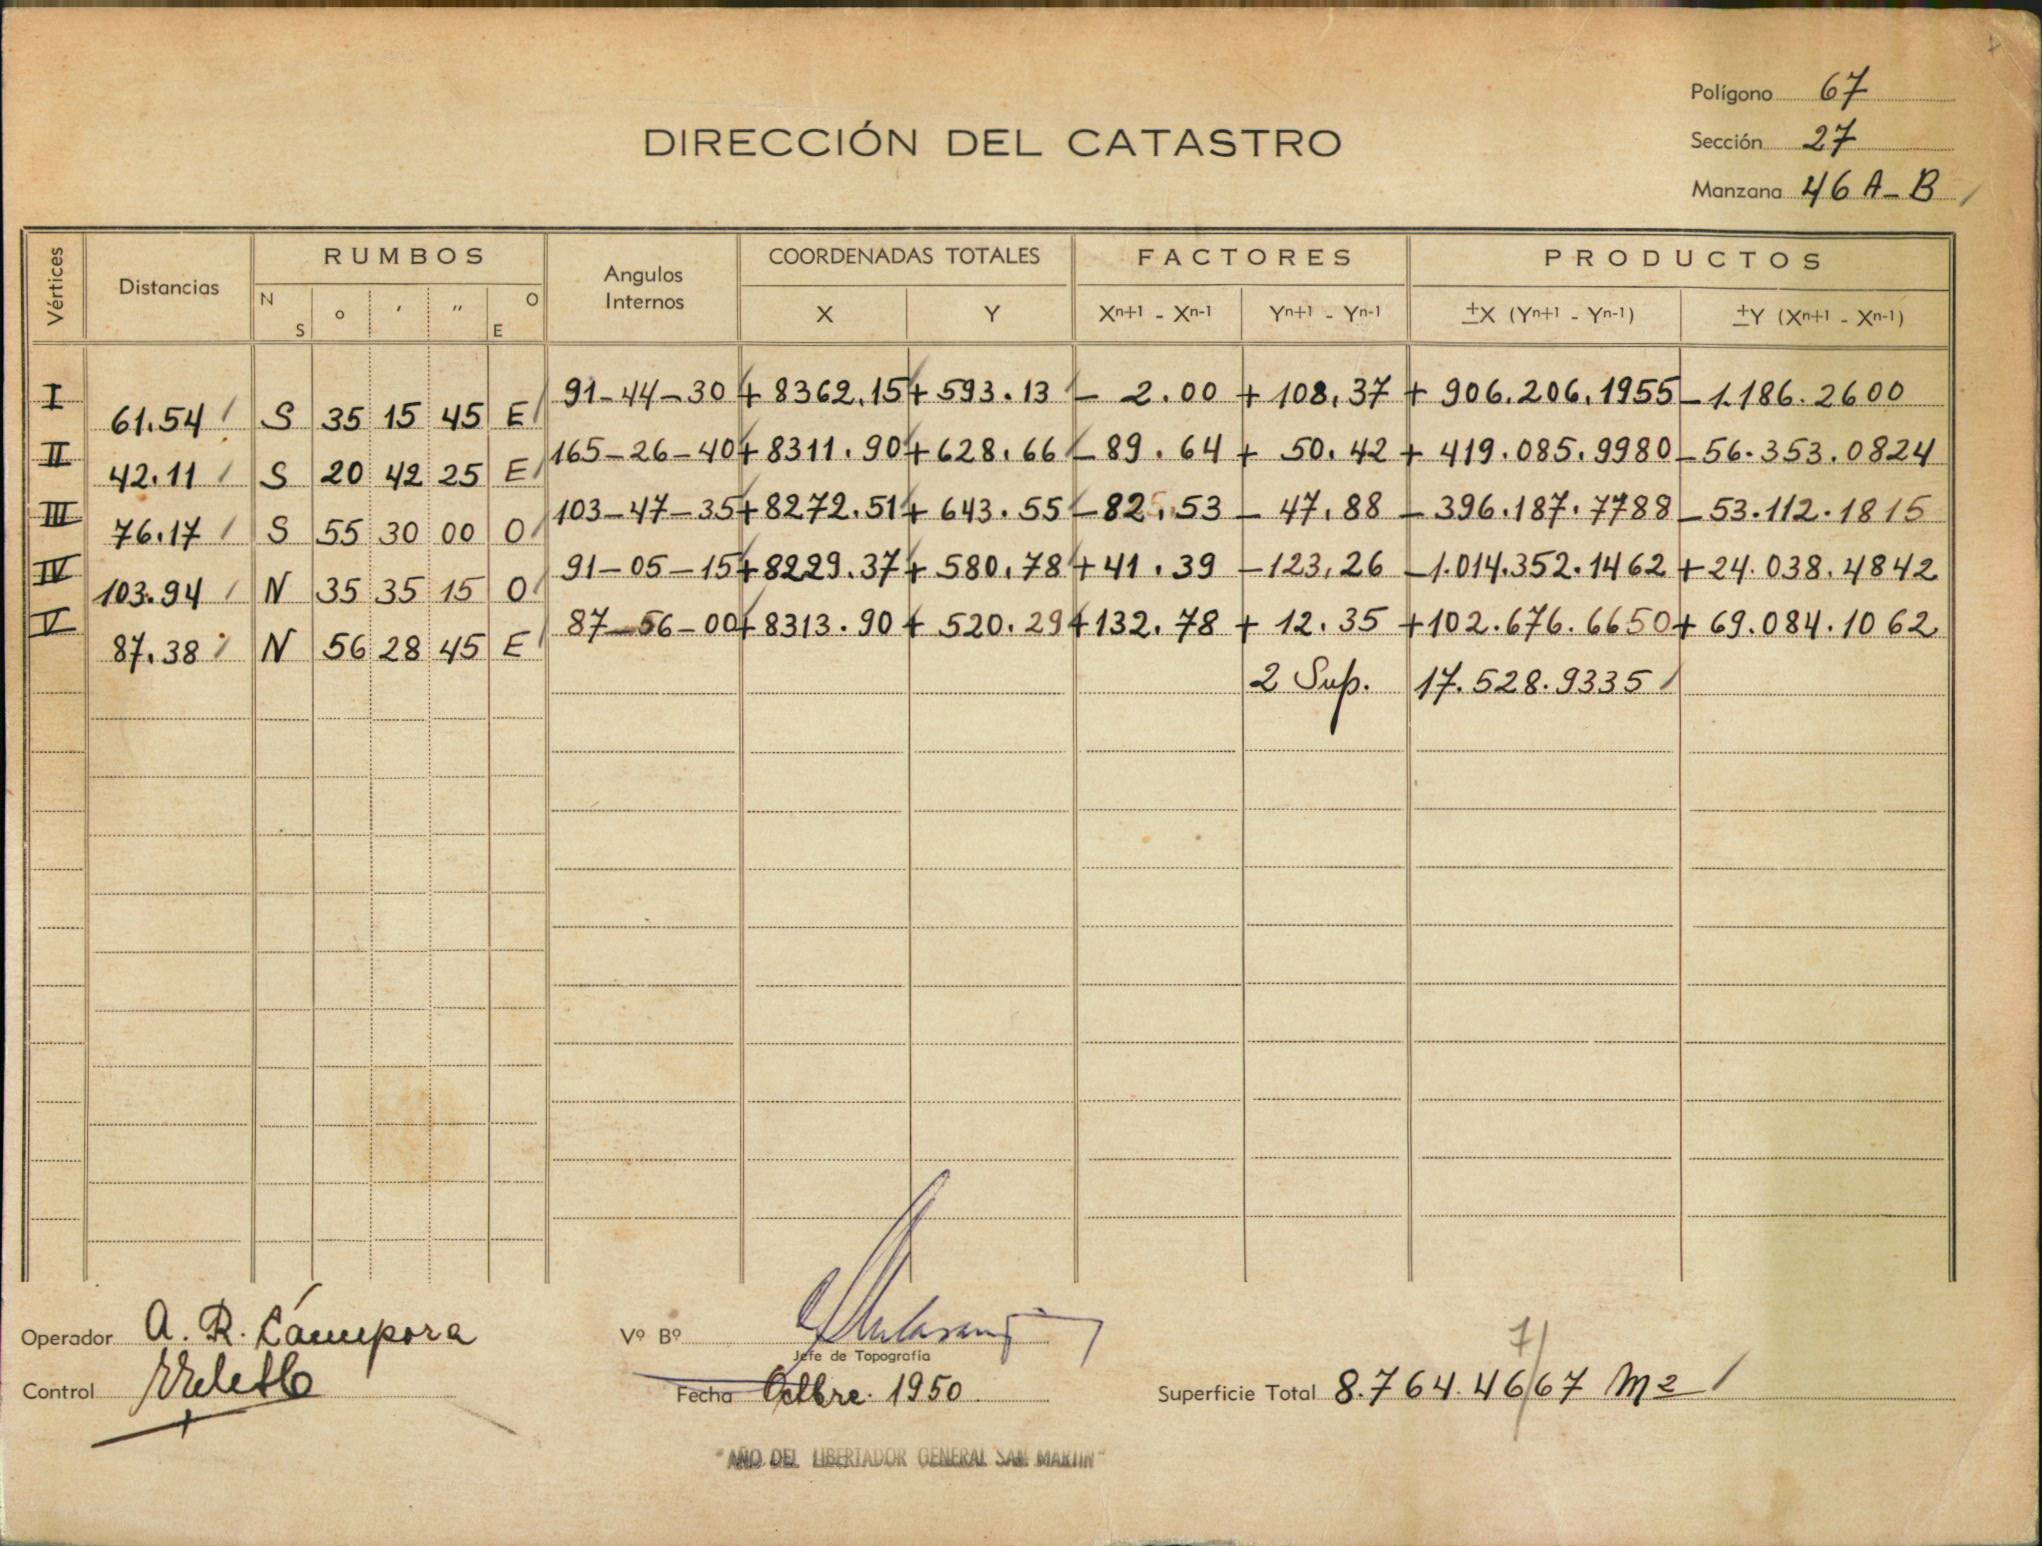 Polígono 67
DIRECCIÓN DEL CATASTRO
Sección 27
Manzana 46 A-B
Vértices Distancias RUMBOS Angulos Internos COORDENADAS TOTALES FACTORES PRODUCTOS
N S ° ' '' O E X Y Xn+1 - Xn-1 Yn+1 - Yn-1 ±X (Yn+1 - Yn-1) ±Y (Xn+1 - Xn-1)
I 91-44-30 + 8362.15 + 593.13 - 2.00 + 108.37 + 906.206.1955 - 1.186.2600
61.54 S 35 15 45 E
II 165-26-40 + 8311.90 + 628.66 - 89.64 + 50.42 + 419.085.9980 - 56.353.0824
42.11 S 20 42 25 E
III 103-47-35 + 8272.51 + 643.55 - 82.53 - 47.88 - 396.187.7788 - 53.112.1815
76.17 S 55 30 00 O
IV 91-05-15 + 8229.37 + 580.78 + 41.39 - 123.26 - 1.014.352.1462 + 24.038.4842
103.94 N 35 35 15 O
V 87-56-00 + 8313.90 + 520.29 + 132.78 + 12.35 + 102.676.6650 + 69.084.1062
87.38 N 56 28 45 E
2 Sup. 17.528.9335
Operador A. R. Cámpora
Vº Bº
Jefe de Topografía
7
Control
Fecha Octbre. 1950
Superficie Total 8.764.4667 m2
"AÑO DEL LIBERTADOR GENERAL SAN MARTIN"